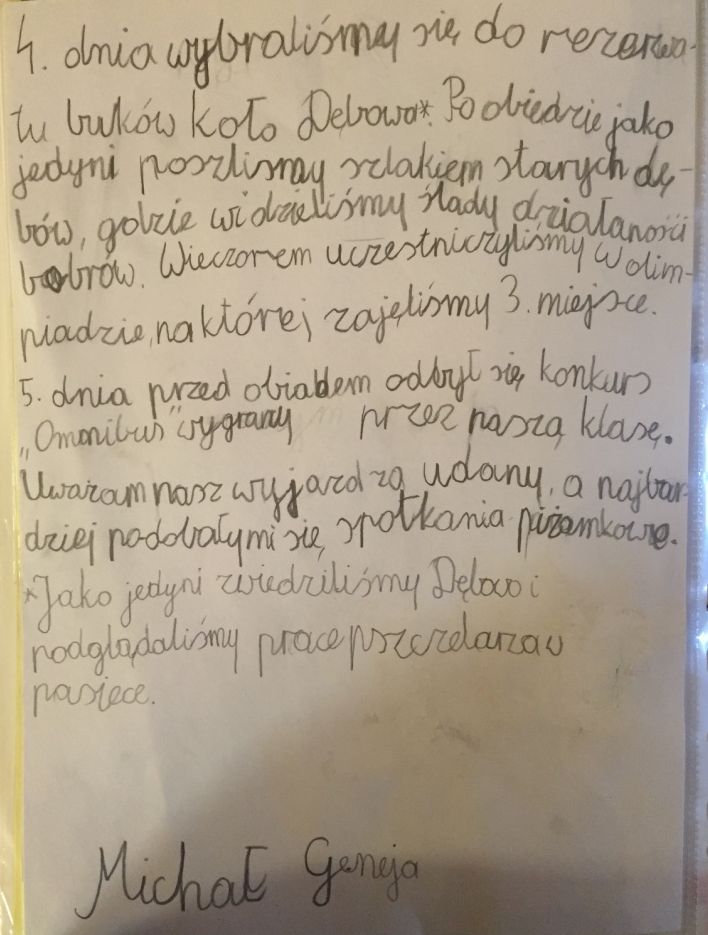 4. dnia wybraliśmy się do rezerwa-
tu buków koło Dębowa*. Po obiedzie jako
jedyni poszliśmy szlakiem starych dę-
bów, gdzie widzieliśmy ślady działaności
bobrów. Wieczorem uczestniczyliśmy w olim-
piadzie, na której zajęliśmy 3. miejsce.
5. dnia przed obiadem odbył się konkurs
„Omonibus" wygrany przez naszą klasę.
Uważam nasz wyjazd za udany, a najbar-
dziej podobały mi się spotkania piżamkowe.
*Jako jedyni zwiedziliśmy Dębowo i
podglądaliśmy prace pszczelarza w
pasiece.
Michał Geneja